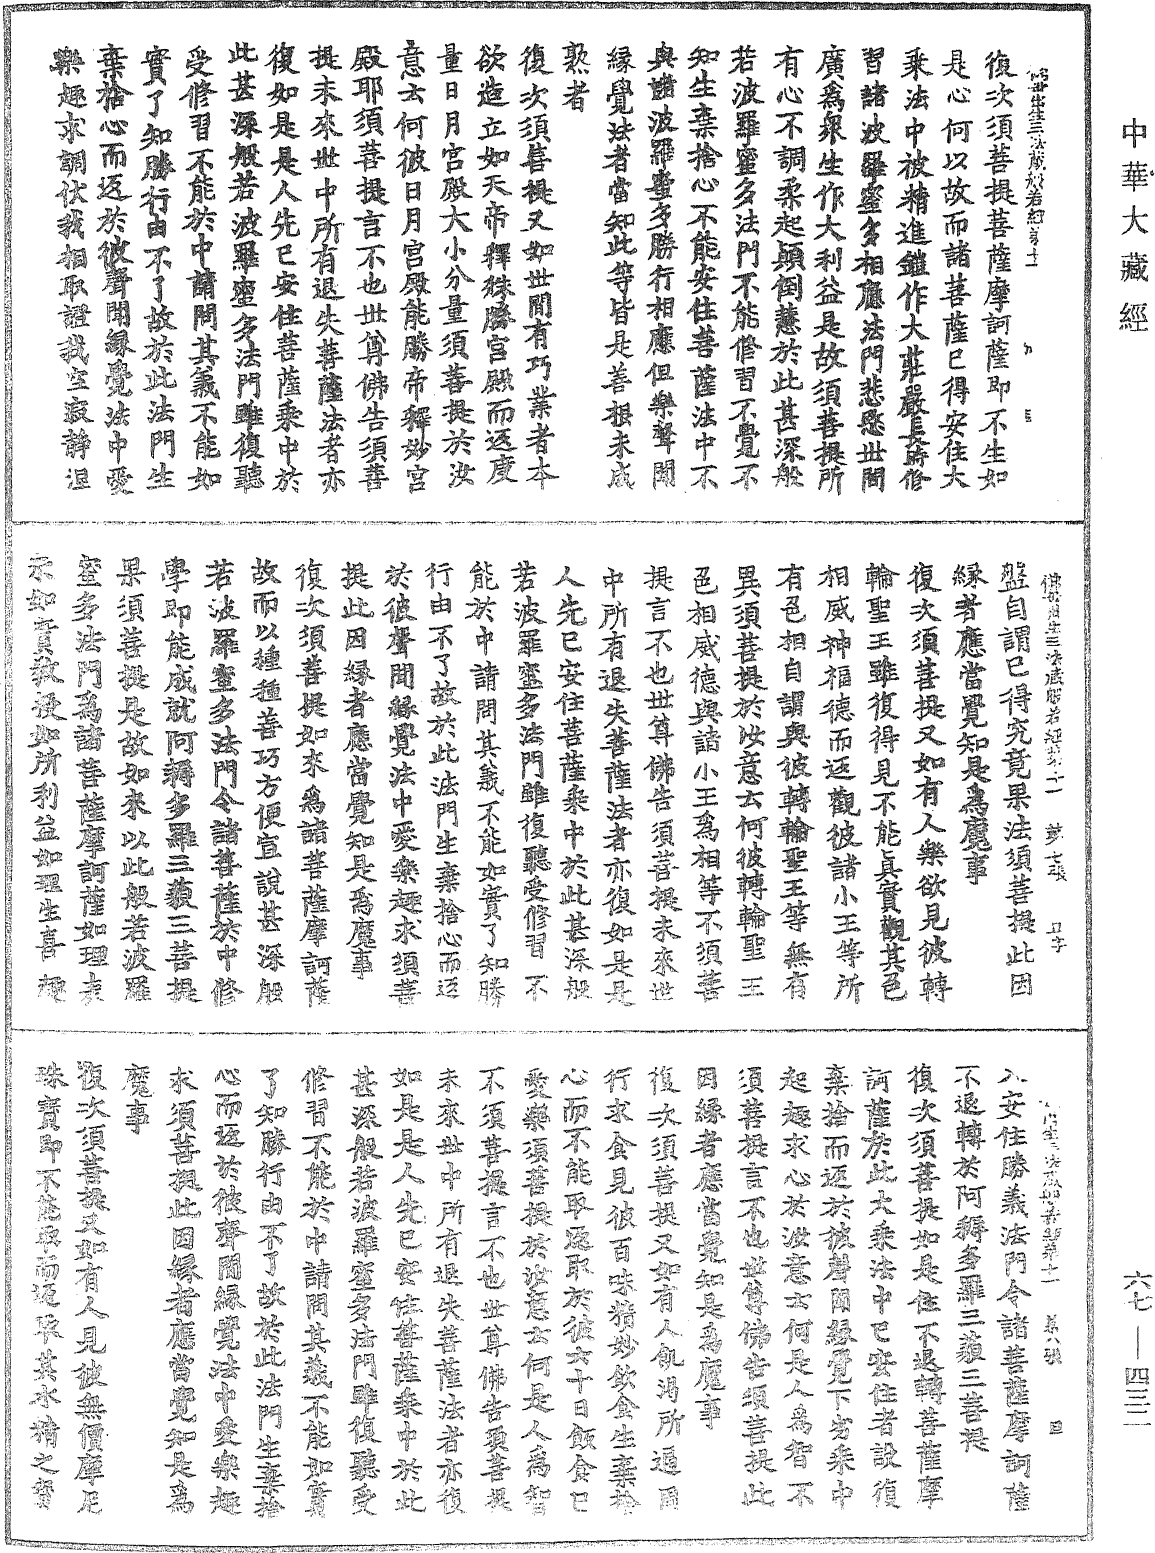 中華大藏經
復次須菩提菩薩摩訶薩即不生如
是心何以故而諸菩薩已得安住大
乘法中被精進鎧作大莊嚴長時修
習諸波羅蜜多相應法門悲愍世間
廣為眾生作大利益是故須菩提所
有心不調柔起顛倒慧於此甚深般
若波羅蜜多法門不能修習不覺不
知生棄捨心不能安住菩薩法中不
與諸波羅蜜多勝行相應但樂聲聞
緣覺法者當知此等皆是善根未成
熟者
復次須菩提又如世間有巧業者本
欲造立如天帝釋殊勝宮殿而返度
量日月宮殿大小分量須菩提於汝
意云何彼日月宮殿能勝帝釋妙宮
殿耶須菩提言不也世尊佛告須菩
提未來世中所有退失菩薩法者亦
復如是是人先已安住菩薩乘中於
此甚深般若波羅蜜多法門雖復聽
受修習不能於中請問其義不能如
實了知勝行由不了故於此法門生
棄捨心而返於彼聲聞緣覺法中愛
樂趣求調伏我相取證我空寂靜涅
佛說出生三法藏般若經第十一 第七張 卫字
盤自謂已得究竟果法須菩提此因
緣者應當覺知是為魔事
復次須菩提又如有人樂欲見彼轉
輪聖王雖復得見不能真實觀其色
相威神福德而返觀彼諸小王等所
有色相自謂與彼轉輪聖王等無有
異須菩提於汝意云何彼轉輪聖王
色相威德與諸小王為相等不須菩
提言不也世尊佛告須菩提未來世
中所有退失菩薩法者亦復如是是
人先已安住菩薩乘中於此甚深般
若波羅蜜多法門雖復聽受修習不
能於中請問其義不能如實了知勝
行由不了故於此法門生棄捨心而返
於彼聲聞緣覺法中愛樂趣求須菩
提此因緣者應當覺知是為魔事
復次須菩提如來為諸菩薩摩訶薩
故而以種種善巧方便宣說甚深般
若波羅蜜多法門令諸菩薩於中修
學即能成就阿耨多羅三藐三菩提
果須菩提是故如來以此般若波羅
蜜多法門為諸菩薩摩訶薩如理表
示如實教授如所利益如理生喜趣
入安住勝義法門令諸菩薩摩訶薩
不退轉於阿耨多羅三藐三菩提
復次須菩提如是住不退轉菩薩摩
訶薩於此大乘法中已安住者設復
棄捨而返於彼聲聞緣覺下劣乘中
起趣求心於汝意云何是人為智不
須菩提言不也世尊佛告須菩提此
因緣者應當覺知是為魔事
復次須菩提又如有人飢渴所逼周
行求食見彼百味精妙飲食生棄捨
心而不能取返取於彼六十日飯食已
愛樂須菩提於汝意云何是人為智
不須菩提言不也世尊佛告須菩提
未來世中所有退失菩薩法者亦復
如是是人先已安住菩薩乘中於此
甚深般若波羅蜜多法門雖復聽受
修習不能於中請問其義不能如實
了知勝行由不了故於此法門生棄捨
心而返於彼聲聞緣覺法中愛樂趣
求須菩提此因緣者應當覺知是為
魔事
復次須菩提又如有人見彼無價摩尼
珠寶即不能取而返取其水精之寶
六七—四三二